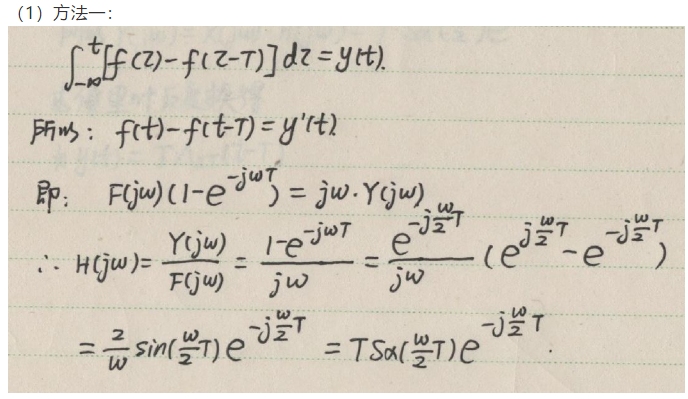 （1）方法一：
∫_{-∞}^{t} [f(τ) - f(τ-T)] dτ = y(t).
所以: f(t) - f(t-T) = y'(t).
即: F(jω)(1 - e^{-jωT}) = jω·Y(jω)
∴ H(jω) = Y(jω)/F(jω) = (1 - e^{-jωT})/(jω) = e^{-j(ω/2)T}/(jω) (e^{j(ω/2)T} - e^{-j(ω/2)T})
= (2/ω) sin((ω/2)T) e^{-j(ω/2)T} = T Sa((ω/2)T) e^{-j(ω/2)T}.